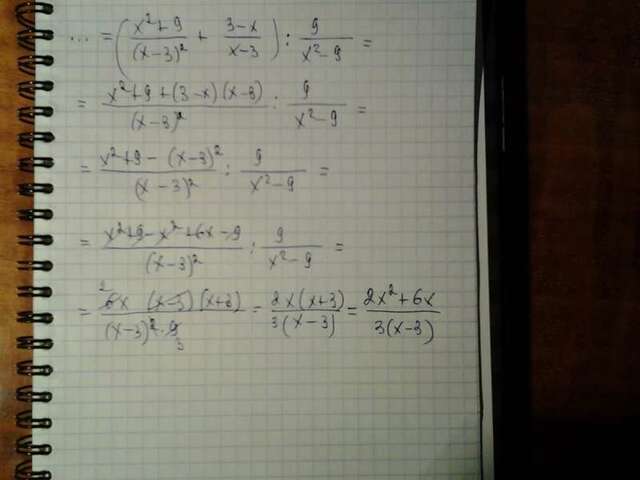 ... = ( (x²+9)/(x-3)² + (3-x)/(x-3) ) : 9/(x²-9) =
= (x²+9+(3-x)(x-3))/(x-3)² : 9/(x²-9) =
= (x²+9-(x-3)²)/(x-3)² : 9/(x²-9) =
= (x²+9-x²+6x-9)/(x-3)² : 9/(x²-9) =
= (2 6x (x-3)(x+3))/((x-3)²·9 3) = (2x(x+3))/(3(x-3)) = (2x²+6x)/(3(x-3))